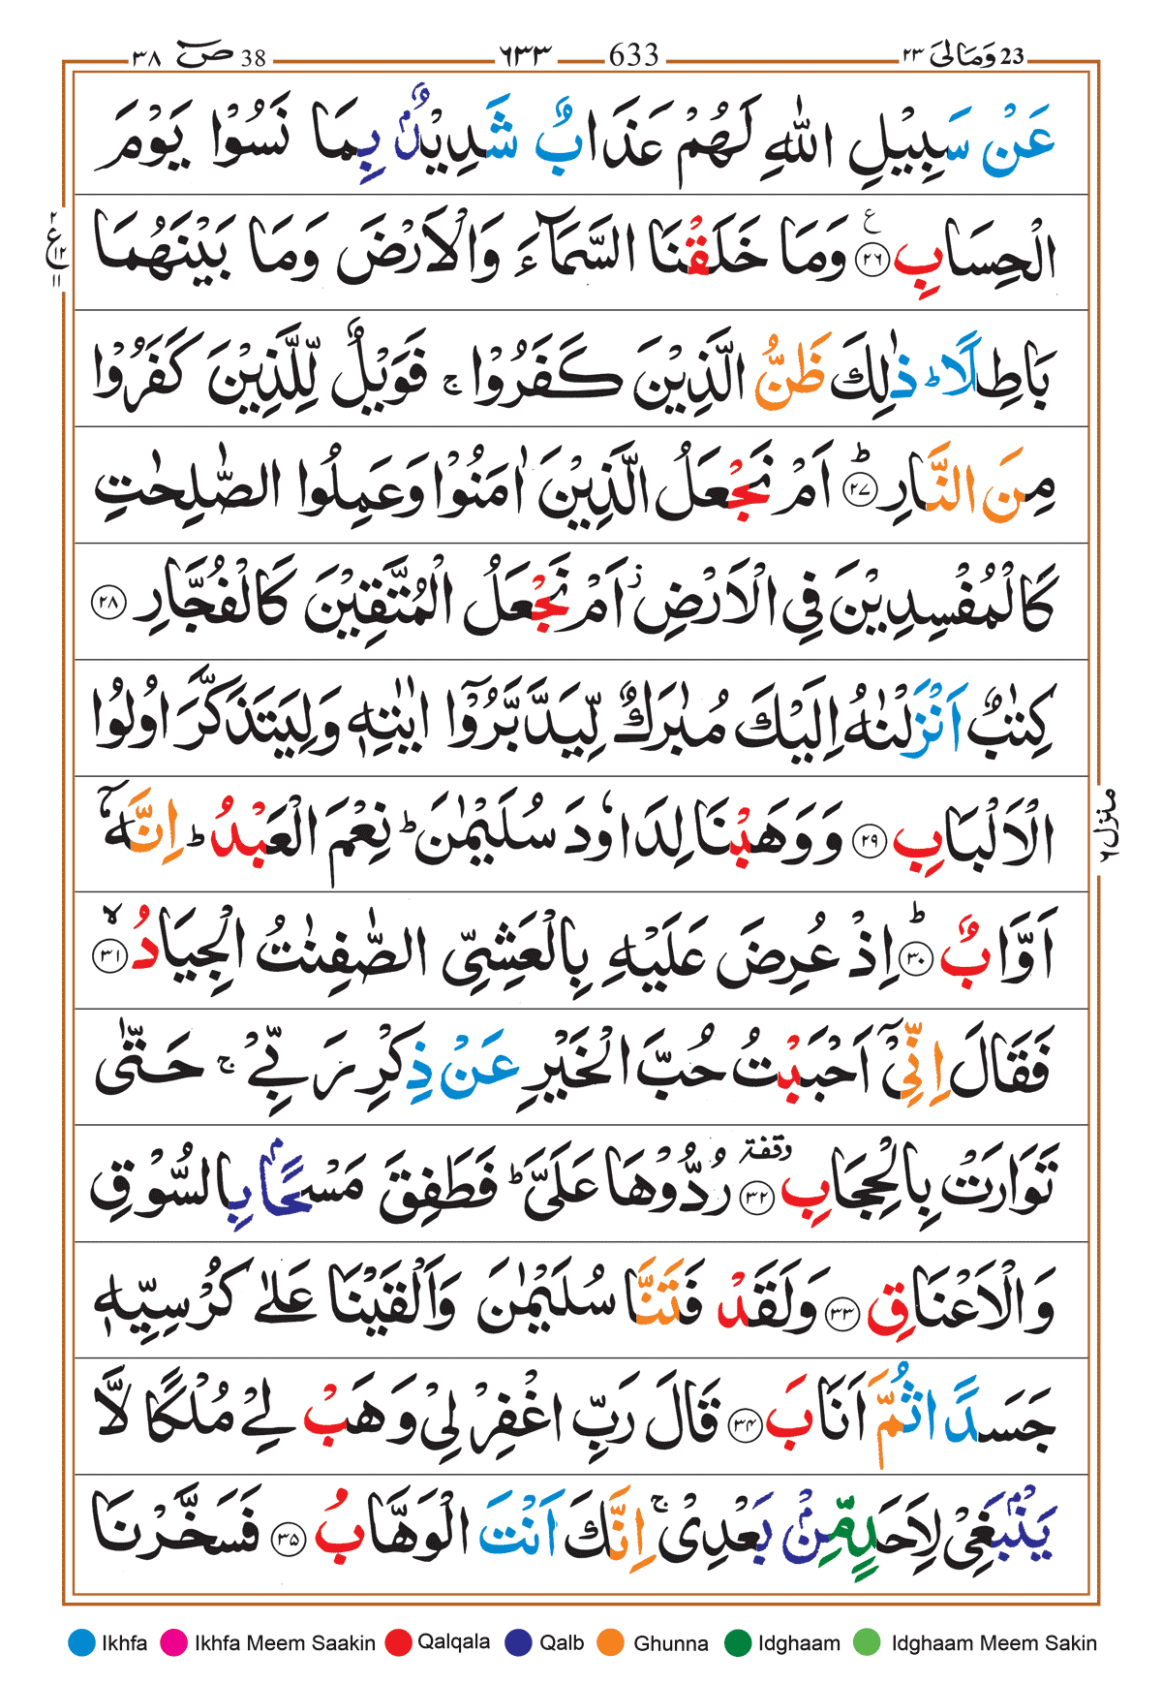 38 صٓ ٣٨
633 ٦٣٣
23 وَمَالِیَ ٢٣
عَنْ سَبِیْلِ اللّٰهِ لَهُمْ عَذَابٌ شَدِیْدٌۢ بِمَا نَسُوْا یَوْمَ
الْحِسَابِ ﴿٢٦﴾ ع وَمَا خَلَقْنَا السَّمَآءَ وَالْاَرْضَ وَمَا بَیْنَهُمَا
بَاطِلًا ؕ ذٰلِكَ ظَنُّ الَّذِیْنَ كَفَرُوْا ۚ فَوَیْلٌ لِّلَّذِیْنَ كَفَرُوْا
مِنَ النَّارِ ﴿٢٧﴾ ؕ اَمْ نَجْعَلُ الَّذِیْنَ اٰمَنُوْا وَعَمِلُوا الصّٰلِحٰتِ
كَالْمُفْسِدِیْنَ فِی الْاَرْضِ ؗ اَمْ نَجْعَلُ الْمُتَّقِیْنَ كَالْفُجَّارِ ﴿٢٨﴾
كِتٰبٌ اَنْزَلْنٰهُ اِلَیْكَ مُبٰرَكٌ لِّیَدَّبَّرُوْۤا اٰیٰتِهٖ وَلِیَتَذَكَّرَ اُولُوا
الْاَلْبَابِ ﴿٢٩﴾ وَوَهَبْنَا لِدَاوٗدَ سُلَیْمٰنَ ؕ نِعْمَ الْعَبْدُ ؕ اِنَّهٗۤ
اَوَّابٌ ﴿٣٠﴾ ؕ اِذْ عُرِضَ عَلَیْهِ بِالْعَشِیِّ الصّٰفِنٰتُ الْجِیَادُ ﴿٣١﴾ ۙ
فَقَالَ اِنِّیْۤ اَحْبَبْتُ حُبَّ الْخَیْرِ عَنْ ذِكْرِ رَبِّیْ ۚ حَتّٰی
تَوَارَتْ بِالْحِجَابِ ﴿٣٢﴾ وقفة رُدُّوْهَا عَلَیَّ ؕ فَطَفِقَ مَسْحًۢا بِالسُّوْقِ
وَالْاَعْنَاقِ ﴿٣٣﴾ وَلَقَدْ فَتَنَّا سُلَیْمٰنَ وَاَلْقَیْنَا عَلٰی كُرْسِیِّهٖ
جَسَدًا ثُمَّ اَنَابَ ﴿٣٤﴾ قَالَ رَبِّ اغْفِرْ لِیْ وَهَبْ لِیْ مُلْكًا لَّا
یَنْۢبَغِیْ لِاَحَدٍ مِّنْۢ بَعْدِیْ ۚ اِنَّكَ اَنْتَ الْوَهَّابُ ﴿٣٥﴾ فَسَخَّرْنَا
٢ ع ١٢ ١١
منزل ٦
Ikhfa Ikhfa Meem Saakin Qalqala Qalb Ghunna Idghaam Idghaam Meem Sakin